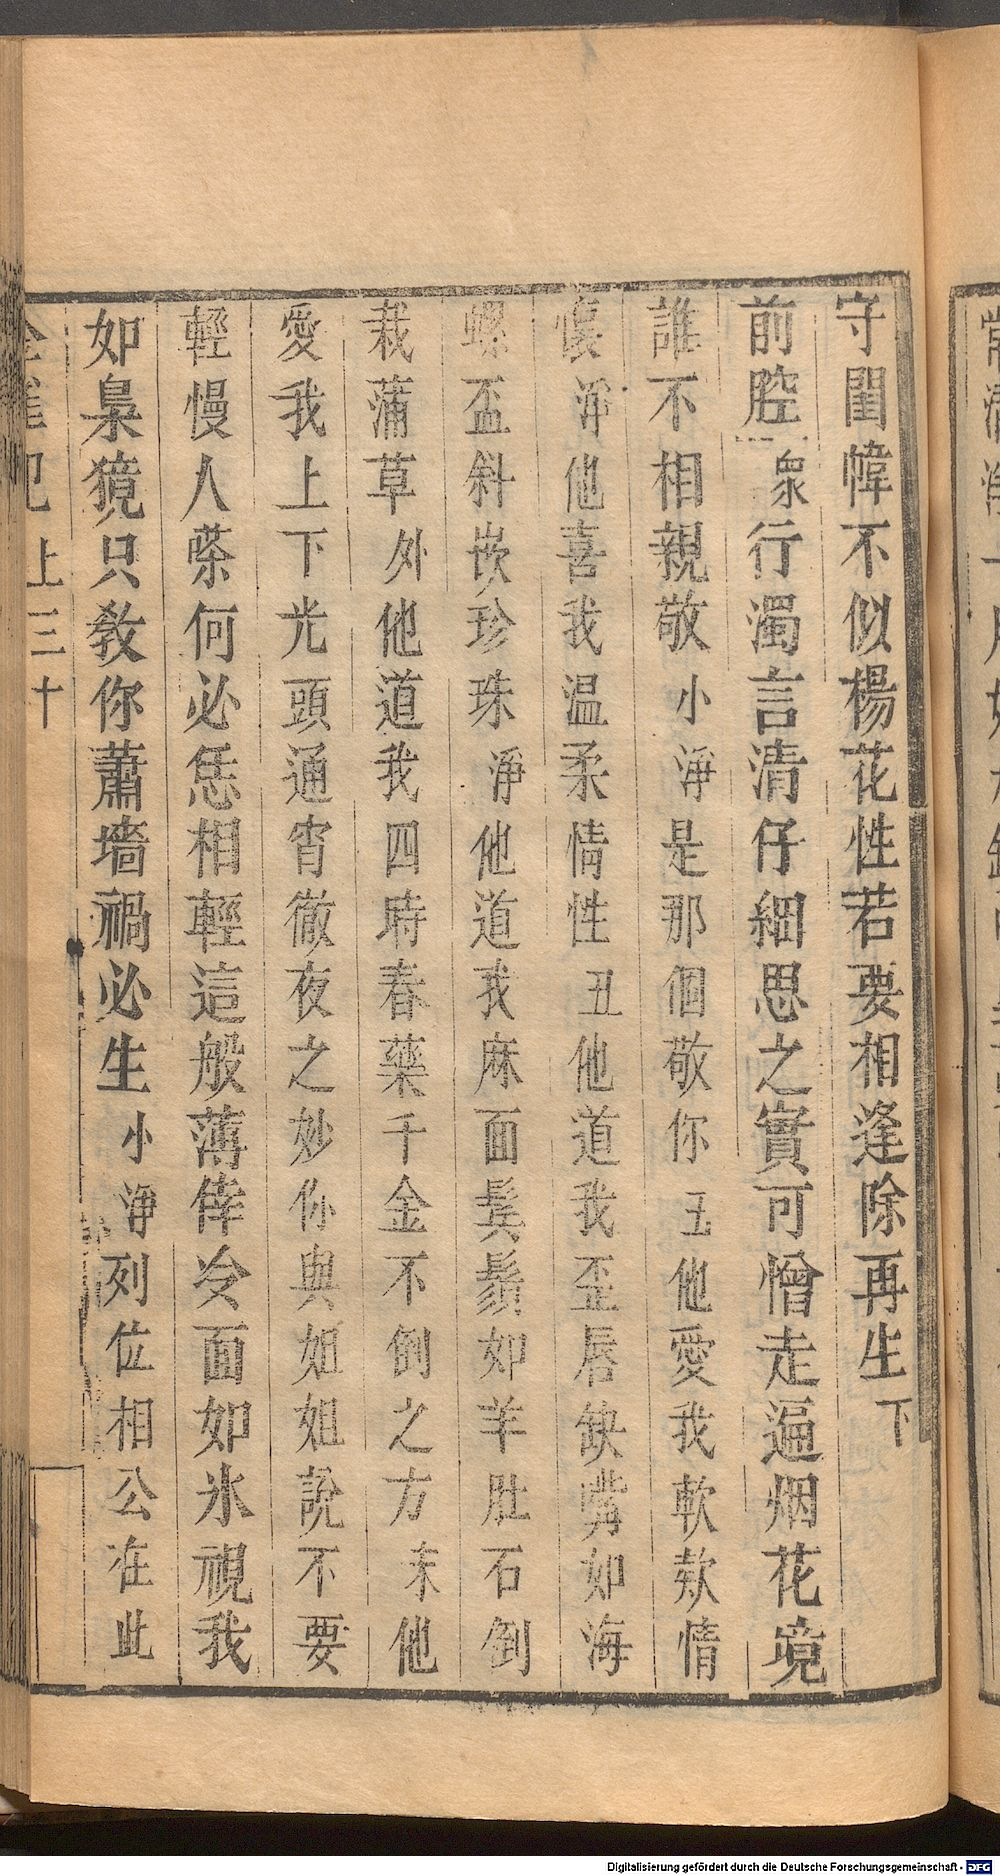 守閨幃不似楊花性若要相逢除再生下
前腔衆行濁言清仔細思之實可憎走遍烟花境
誰不相親敬小淨是那個敬你丑他愛我軟欵情
懷淨他喜我温柔情性丑他道我歪唇缺嘴如海
螺盃斜嵌珍珠淨他道我麻面鬂鬍如羊肚石倒
栽蒲草外他道我四時春藥千金不倒之方末他
愛我上下光頭通宵徹夜之妙你與姐姐說不要
輕慢人嗏何必恁相輕這般薄倖冷面如氷視我
如梟獍只教你蕭墻禍必生小淨列位相公在此
上三十
Digitalisierung gefördert durch die Deutsche Forschungsgemeinschaft - DFG